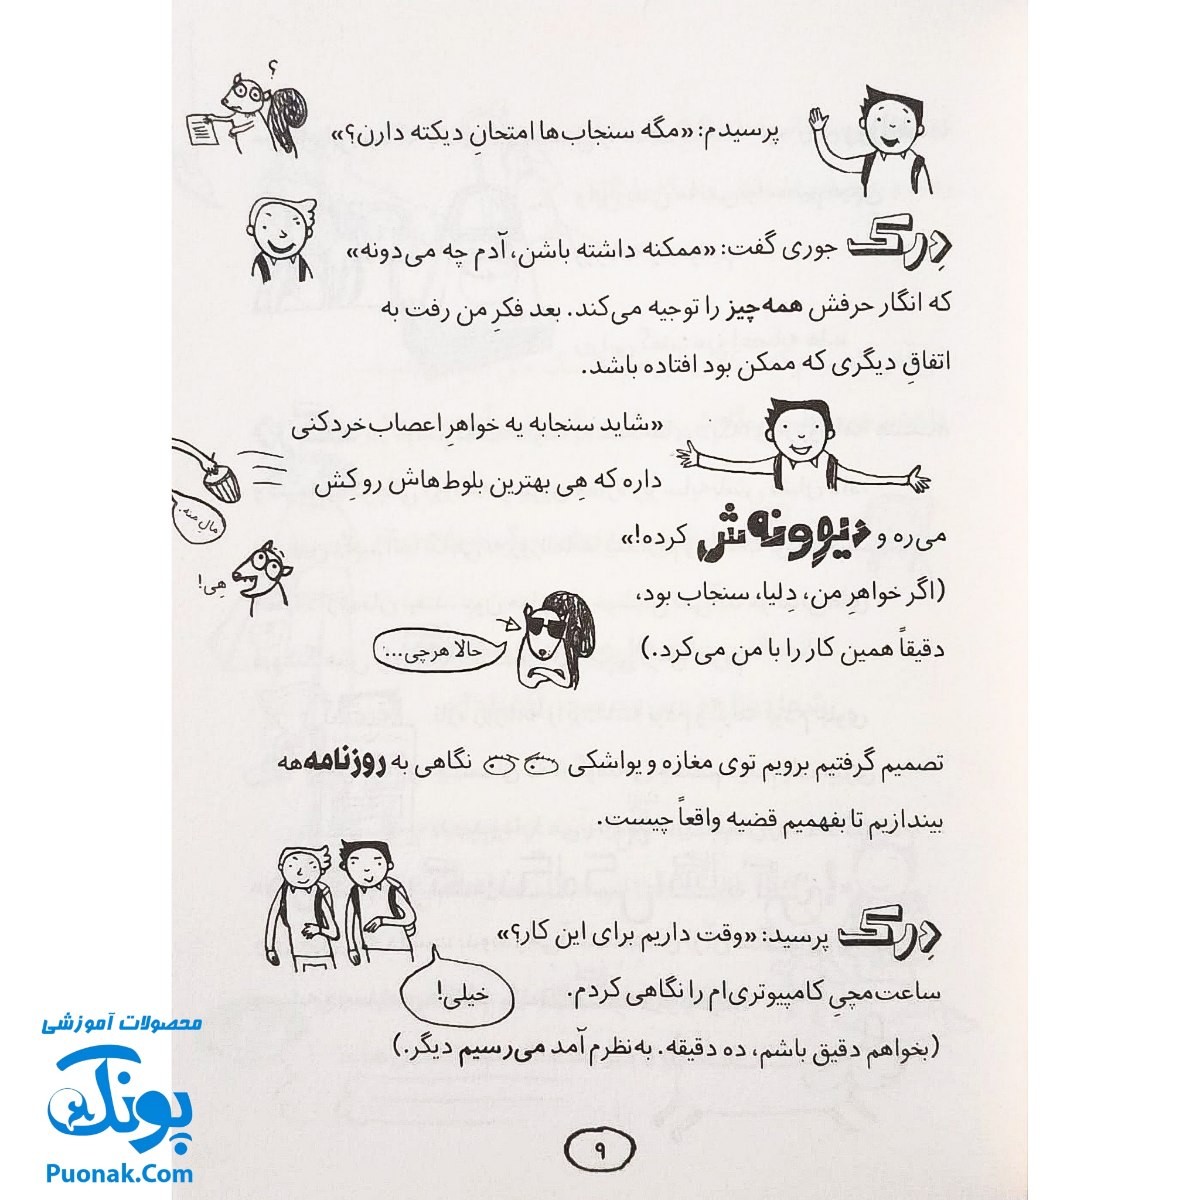 ؟
پرسیدم: «مگه سنجاب‌ها امتحانِ دیکته دارن؟»
دِرِک جوری گفت: «ممکنه داشته باشن، آدم چه می‌دونه»
که انگار حرفش همه‌چیز را توجیه می‌کند. بعد فکرِ من رفت به
اتفاقِ دیگری که ممکن بود افتاده باشد.
«شاید سنجابه یه خواهرِ اعصاب‌خردکنی
داره که هِی بهترین بلوط‌هاش رو کِش
می‌ره و دیوونه‌ش کرده!»
مالِ منه.
هِی!
(اگر خواهرِ من، دِلیا، سنجاب بود،
دقیقاً همین کار را با من می‌کرد.)
حالا هرچی...
تصمیم گرفتیم برویم توی مغازه و یواشکی نگاهی به روزنامه‌هه
بیندازیم تا بفهمیم قضیه واقعاً چیست.
دِرِک پرسید: «وقت داریم برای این کار؟»
ساعت‌مچیِ کامپیوتری‌ام را نگاهی کردم.
خیلی!
(بخواهم دقیق باشم، ده دقیقه. به‌نظرم آمد می‌رسیم دیگر.)
۹
محصولات آموزشی
پونک
Puonak.Com